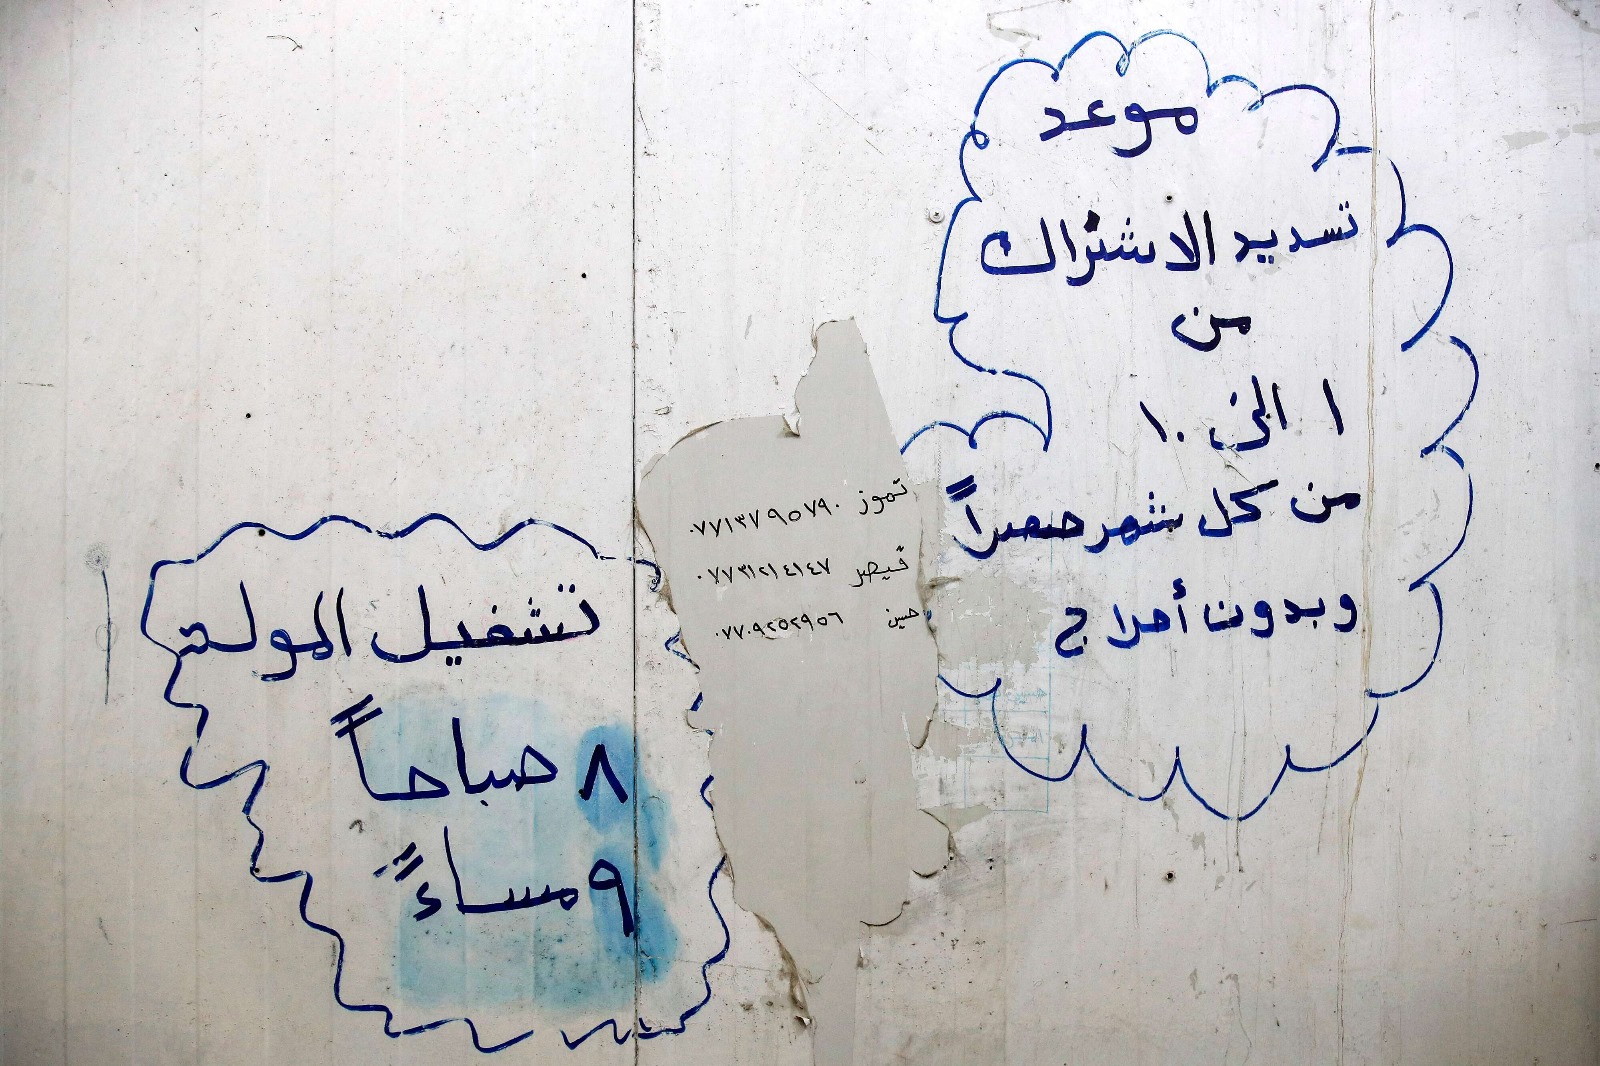 موعد
تسديد الاشتراك
من
١ الى ١٠
من كل شهر حصراً
وبدون أحراج
تموز ٠٧٧١٣٧٩٥٧٩٠
قيصر ٠٧٧٣١٢١٤١٤٧
حسين ٠٧٧٠٩٢٥٢٩٥٦
تشغيل المولد
٨ صباحاً
٩ مساءً